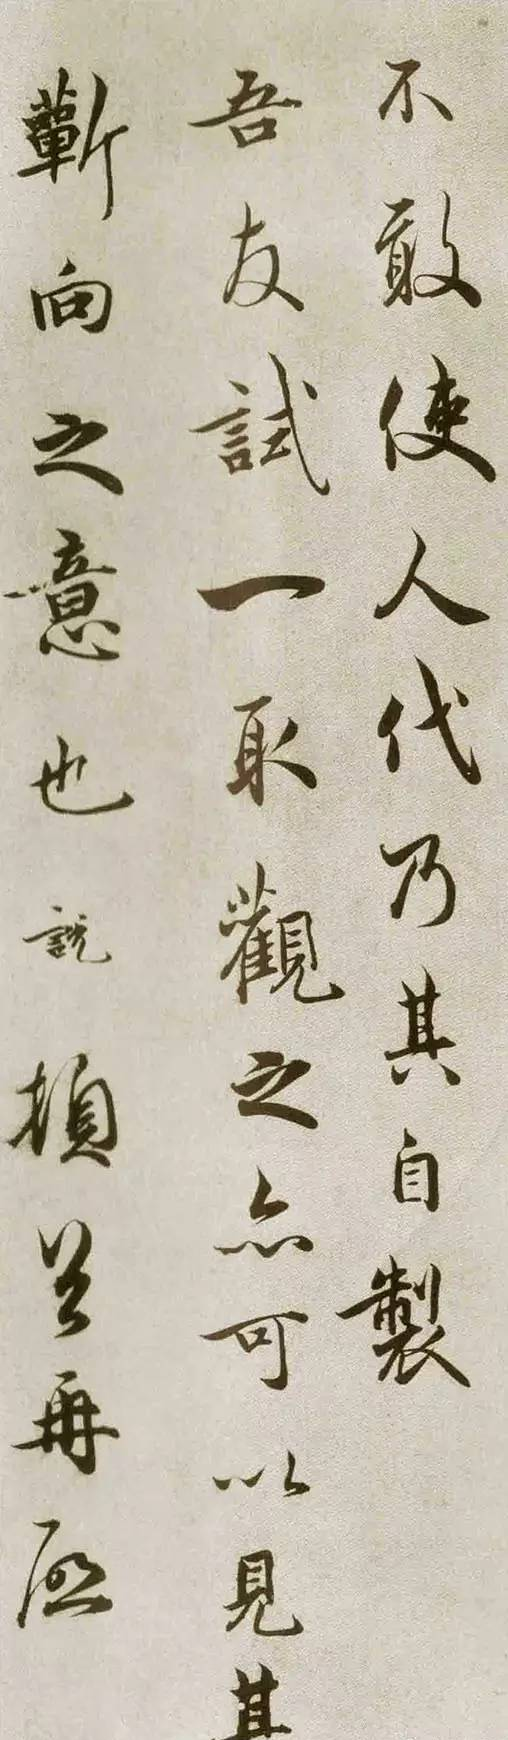 不敢使人代乃其自製
吾友試一取觀之亦可以見其
蘄向之意也說頓首再啟